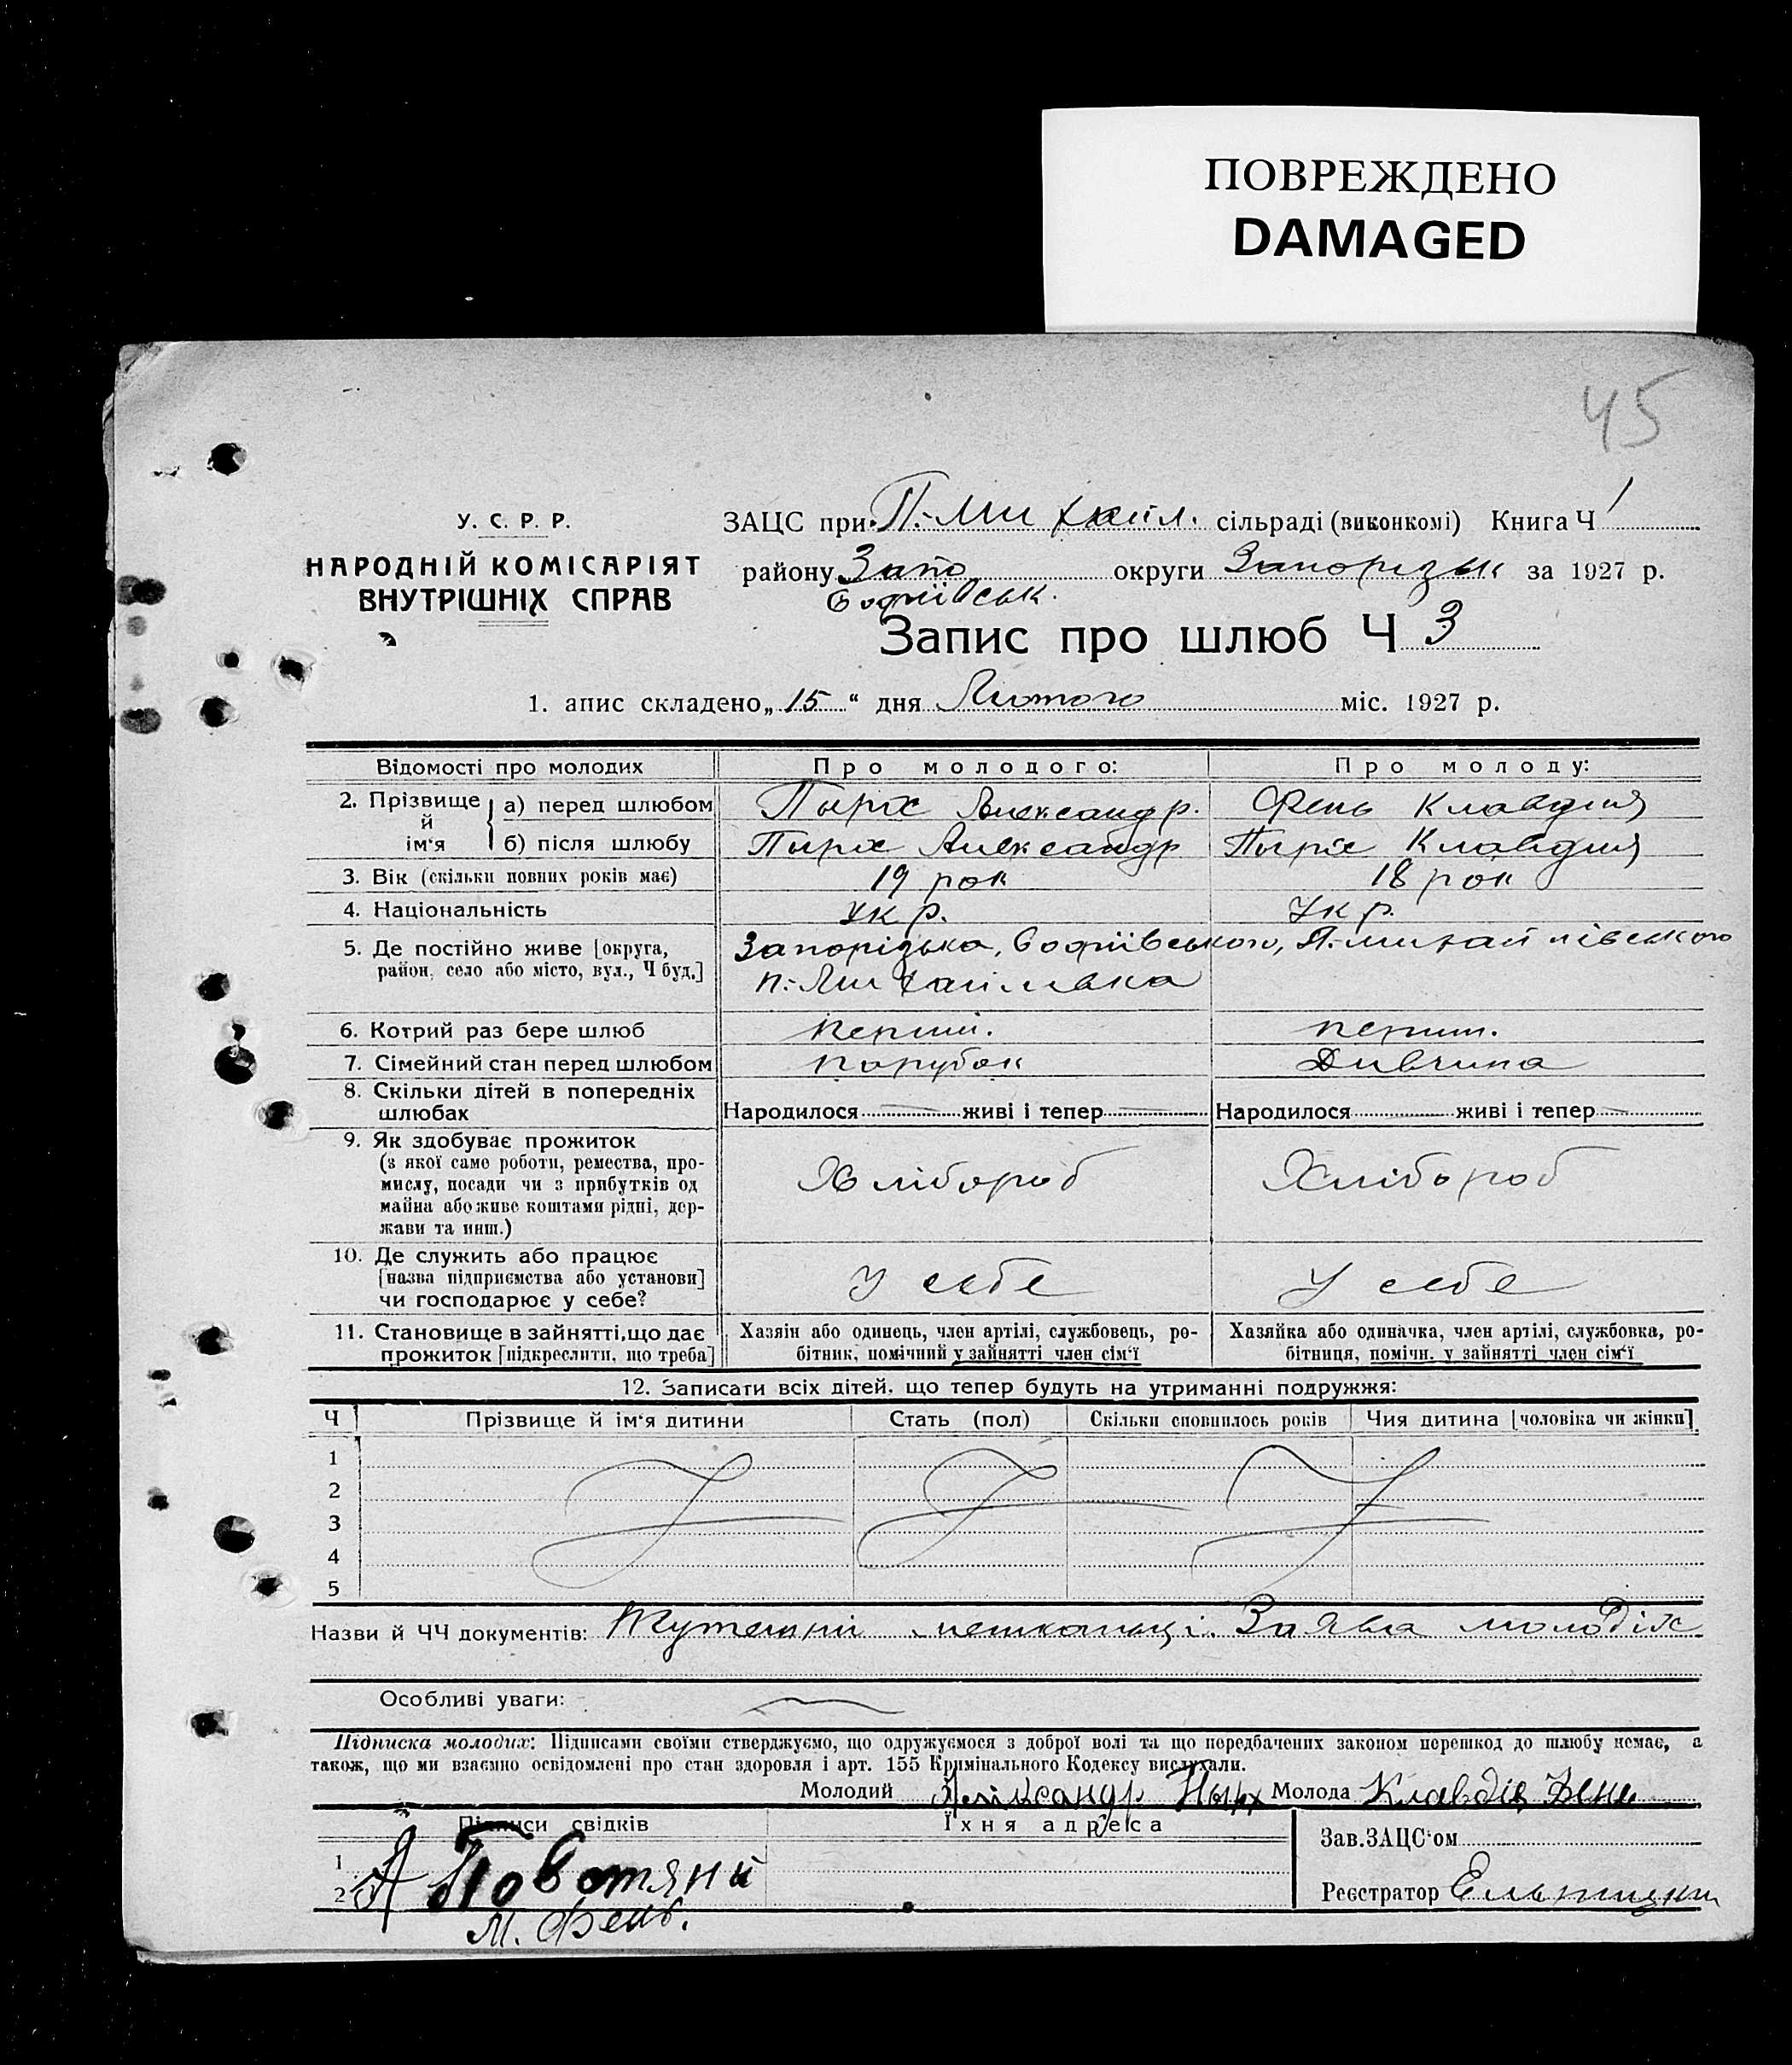 ПОВРЕЖДЕНО
DAMAGED
45
У. С. Р. Р.
НАРОДНІЙ КОМІСАРІЯТ
ВНУТРІШНІХ СПРАВ
ЗАЦС при П.-Михайл. сільраді (виконкомі) Книга Ч 1
району Запо округи Запорізьк за 1927 р.
Софиївськ.
Запис про шлюб Ч 3
1. апис складено „ 15 “ дня Лютого міс. 1927 р.
Відомості про молодих Про молодого: Про молоду:
2. Прізвище й ім‘я а) перед шлюбом Пиріх Александр. Фень Клавдия
б) після шлюбу Пиріх Александр Пиріх Клавдия
3. Вік (скільки повних років має) 19 рок 18 рок
4. Національність Укр. Укр.
5. Де постійно живе [округа, Запорізька, Софиївського, П.-Михайлівського
район, село або місто, вул., Ч буд.] п.-Михайлівка
6. Котрий раз бере шлюб перший. перш.
7. Сімейний стан перед шлюбом парубок Дивчина
8. Скільки дітей в попередніх
шлюбах Народилося — живі і тепер — Народилося живі і тепер —
9. Як здобуває прожиток
(з якої саме роботи, ремества, про-
мислу, посади чи з прибутків од Хлібороб Хлібороб
майна або живе коштами рідні, дер-
жави та инш.)
10. Де служить або працює
[назва підприємства або установи] У себе У себе
чи господарює у себе?
11. Становище в зайнятті, що дає Хазяїн або одинець, член артілі, службовець, ро- Хазяйка або одиначка, член артілі, службовка, ро-
прожиток [підкреслити, що треба] бітник, помічний у зайнятті член сім‘ї бітниця, помічн. у зайнятті член сім‘ї
12. Записати всіх дітей, що тепер будуть на утриманні подружжя:
Ч Прізвище й ім‘я дитини Стать (пол) Скільки сповнилось років Чия дитина [чоловіка чи жінки]
1
2
3
4
5
Назви й ЧЧ документів: Тутешні мешканці. Заява молодіх
Особливі уваги: —
Підписка молодих: Підписами своїми стверджуємо, що одружуємося з доброї волі та що передбачених законом перешкод до шлюбу немає, а
також, що ми взаємно освідомлені про стан здоровля і арт. 155 Кримінального Кодексу вислухали.
Молодий Александр Пырх Молода Клавдія Фень
Підписи свідків Їхня адреса
Зав. ЗАЦС‘ом
1
2 А Повстяний
Реєстратор
М. Фень.